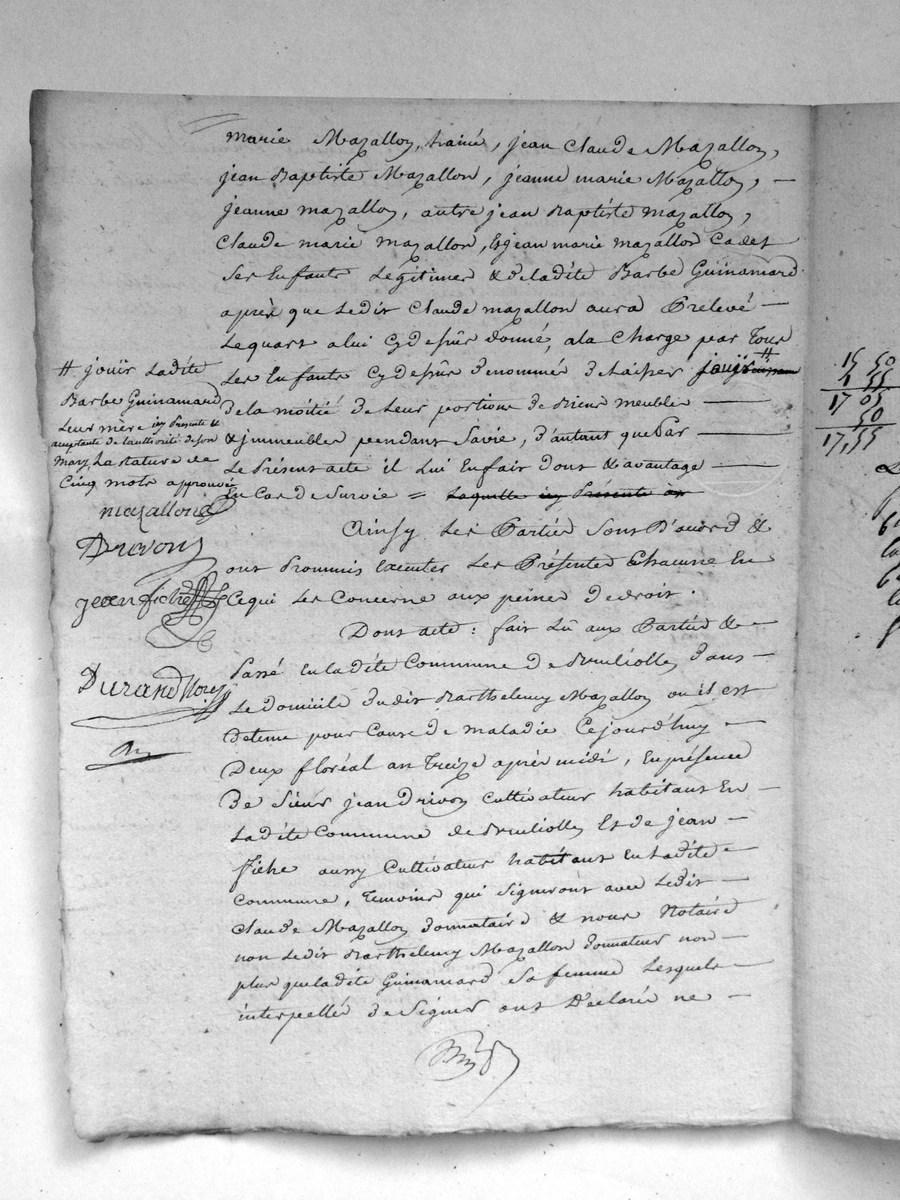 marie Mazallon, l'ainé, jean Claude Mazallon,
jean Baptiste Mazallon, jeanne marie Mazallon, —
jeanne mazallon, autre jean Baptiste mazallon,
Claude marie mazallon, Et jean marie mazallon Cadet
Ses Enfants Legitimes & deladite Barbe Guinamard
après que Ledit Claude mazallon aura Prelevé —
Lequart a lui Cydessus donné, ala Charge par Tous
Les Enfants Cydessus denommés delaisser jouir #
dela moitié de Leur portions de Biens meubles —
& jmmeubles pendant Savie, d'autant quePar —
Le Présent acte il Lui Enfait dont & avantage —
En Cas de Survie = Laquelle icy Présente
Ainsy Les Parties Sont D'acord &
ont Prommis Executer Les Présentes Chacune En
Cequi Les Concerne aux peines dedroit.
Dont acte : fait Lû aux Parties & —
Passé Enladite Commune de Brulliolles dans —
Le domicile dudit Barthelemy Mazallon ou il est
detenu pour Cause de maladie Cejourd'huy —
Deux floréal an Treize après midi, Enprésence
De Sieurs jean Drivon Cultivateur habitant En —
Ladite Commune de Brulliolles Et de jean —
fiche aussy Cultivateur habitant EnLadite —
Commune, Temoins qui Signeront avec Ledit —
Claude Mazallon donnataire & nous Notaire
non Ledit Barthelemy Mazallon donnateur non —
plus queladite Guinamard Sa femme Lesquels —
interpellés de Signer ont Déclaré ne —
# jouir Ladite
Barbe Guinamard
Leur mère icy Presente &
acceptante de l'authorité de son
Mary La rature de
Cinq mots approuvée
mazallon
Drivon
jean fiche
Durand Nore
15 50
1 55
17 05
50
17,55